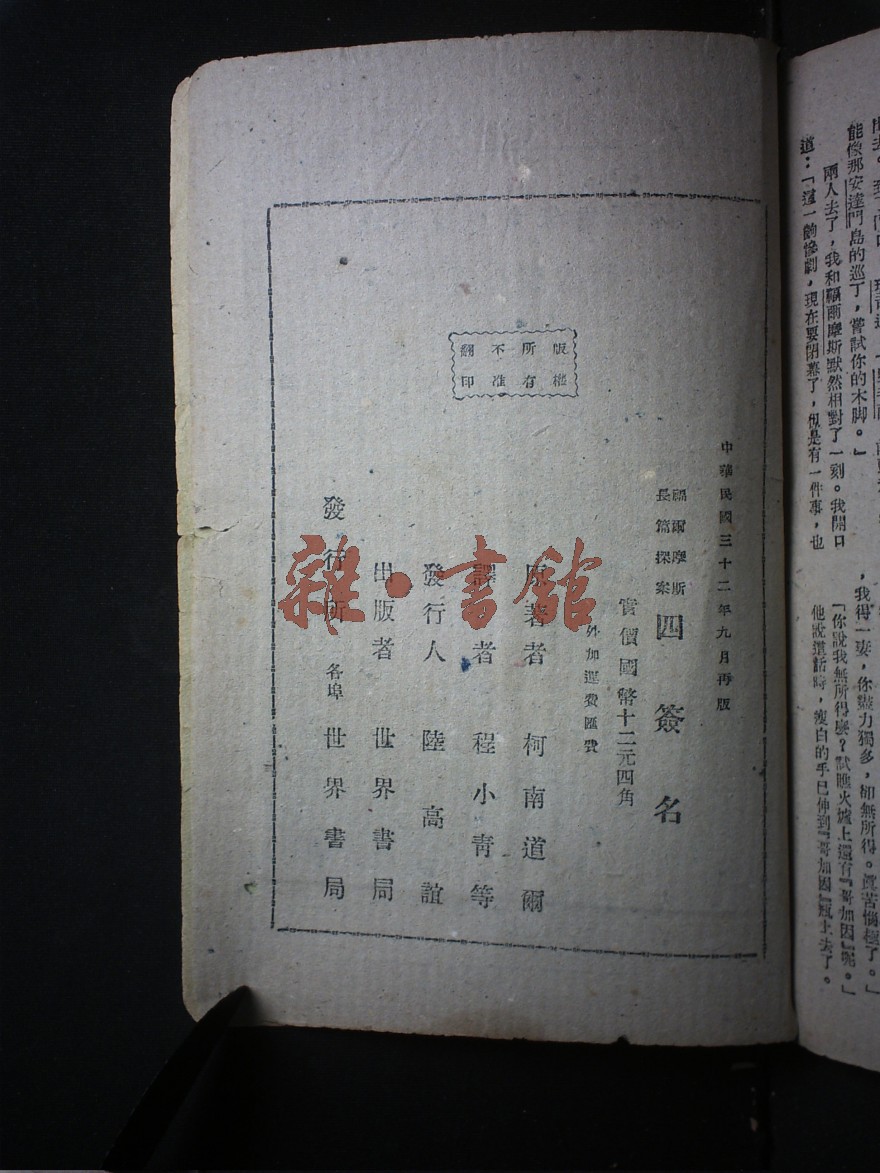 能像那安達門島的巡丁，嘗試你的木脚。」
兩人去了，我和福爾摩斯默然相對了一刻。我開口
道：「這一齣慘劇，現在要閉幕了，但是有一件事，也
，我得一妻，你盡力獨多，却無所得。真苦惱極了。」
「你說我無所得麼？試瞧火爐上還有『哥加因』呢。」
他說這話時，瘦白的手已伸到『哥加因』瓶上去了。
中華民國三十二年九月再版
福爾摩斯
長篇探案
四簽名
實價國幣十二元四角
外加運費匯費
原著者 柯南道爾
譯者 程小青等
發行人 陸高誼
出版者 世界書局
發行所 各埠 世界書局
版權
所有
不准
翻印
雜·書館